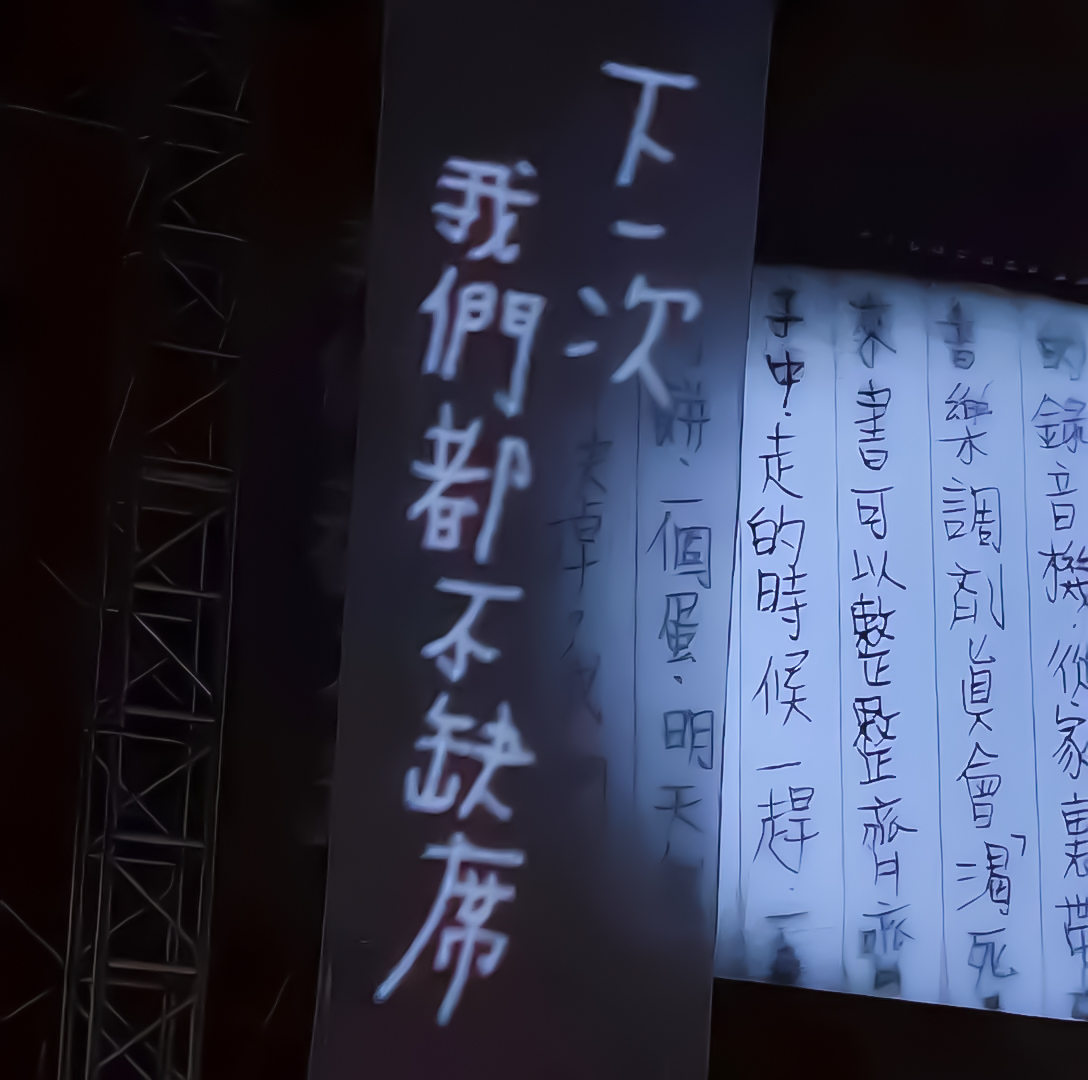 下一次
我們都不缺席
的錄音機.從家裏帶
音樂調剂真會「渴死
來書可以整整齊齊
子中.走的時候一趕.一
餅.一個蛋.明天